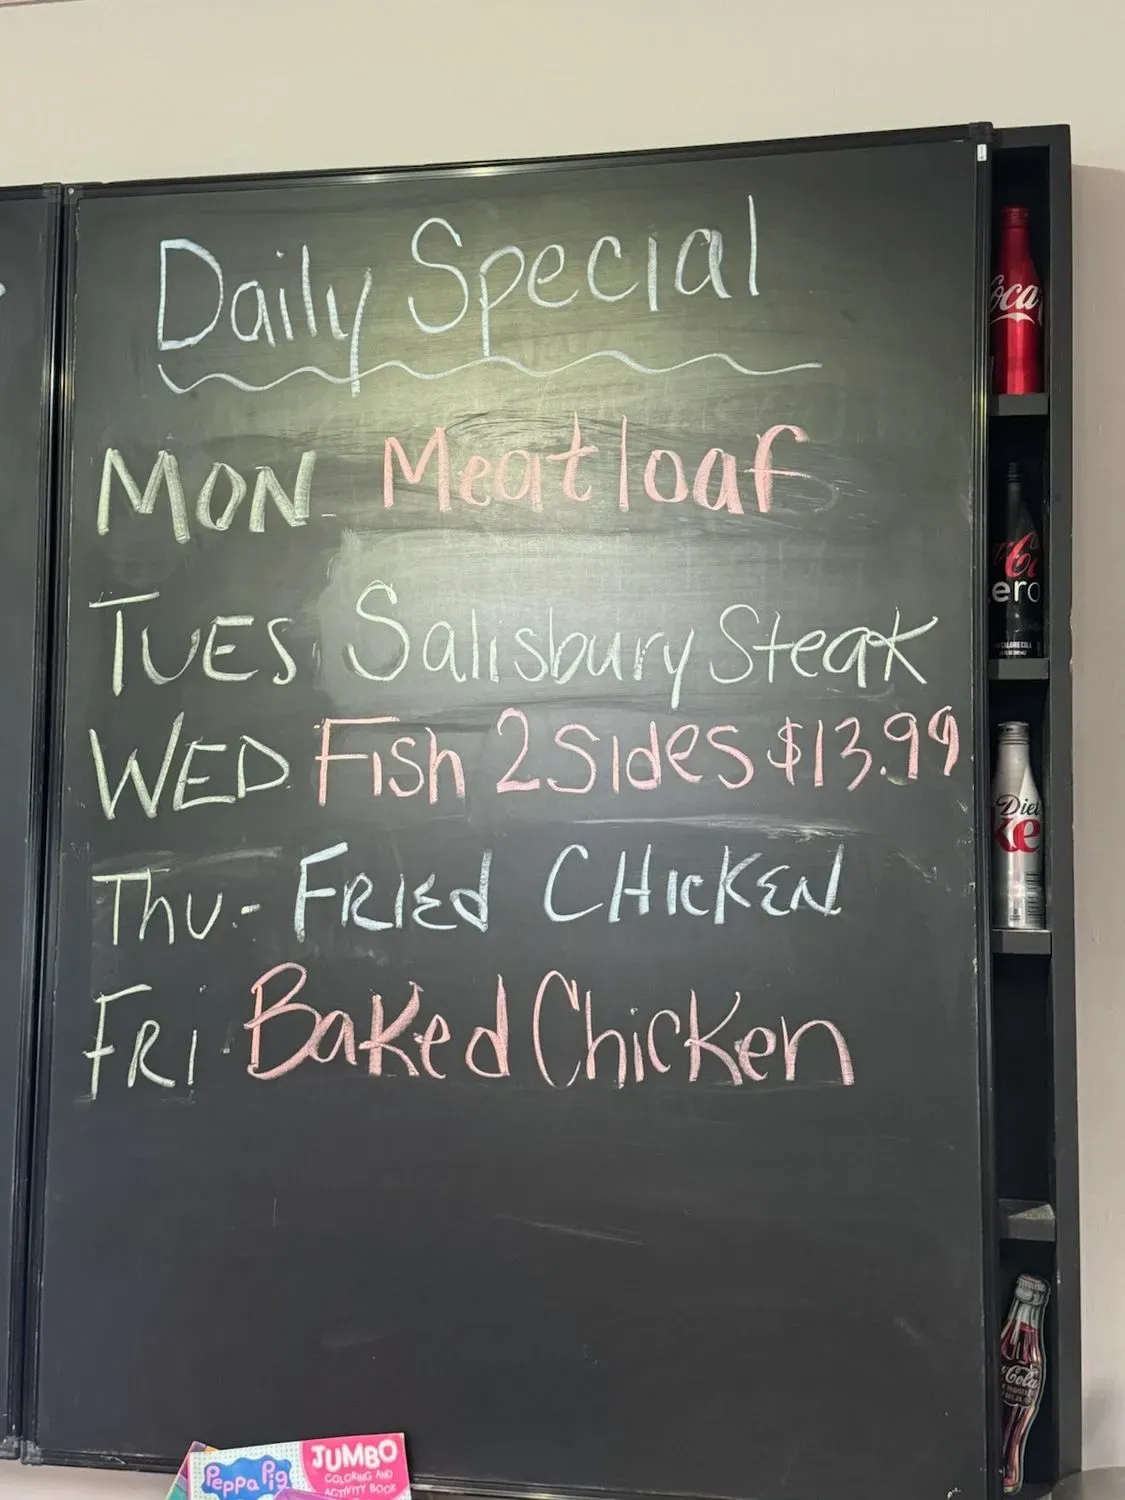 Daily Special
MON Meatloaf
TUES Salisbury Steak
WED Fish 2 Sides $13.99
Thu - FRIEd CHICKEN
FRI Baked Chicken
Coca
Co
ero
Diet
ke
Cola
Peppa Pig
JUMBO
COLORING AND
ACTIVITY BOOK